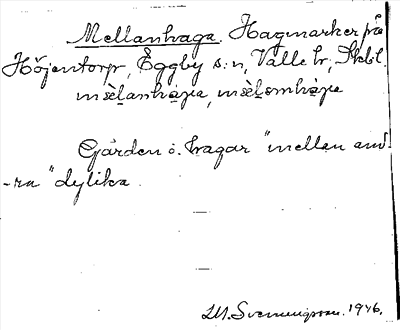 Mellanhaga. Hagmarker på
Höjentorp, Eggby s:n, Valle hr, Skbl.
Gården o. hagar "mellan and-
-ra" dylika.
M. Svenningsson. 1946.